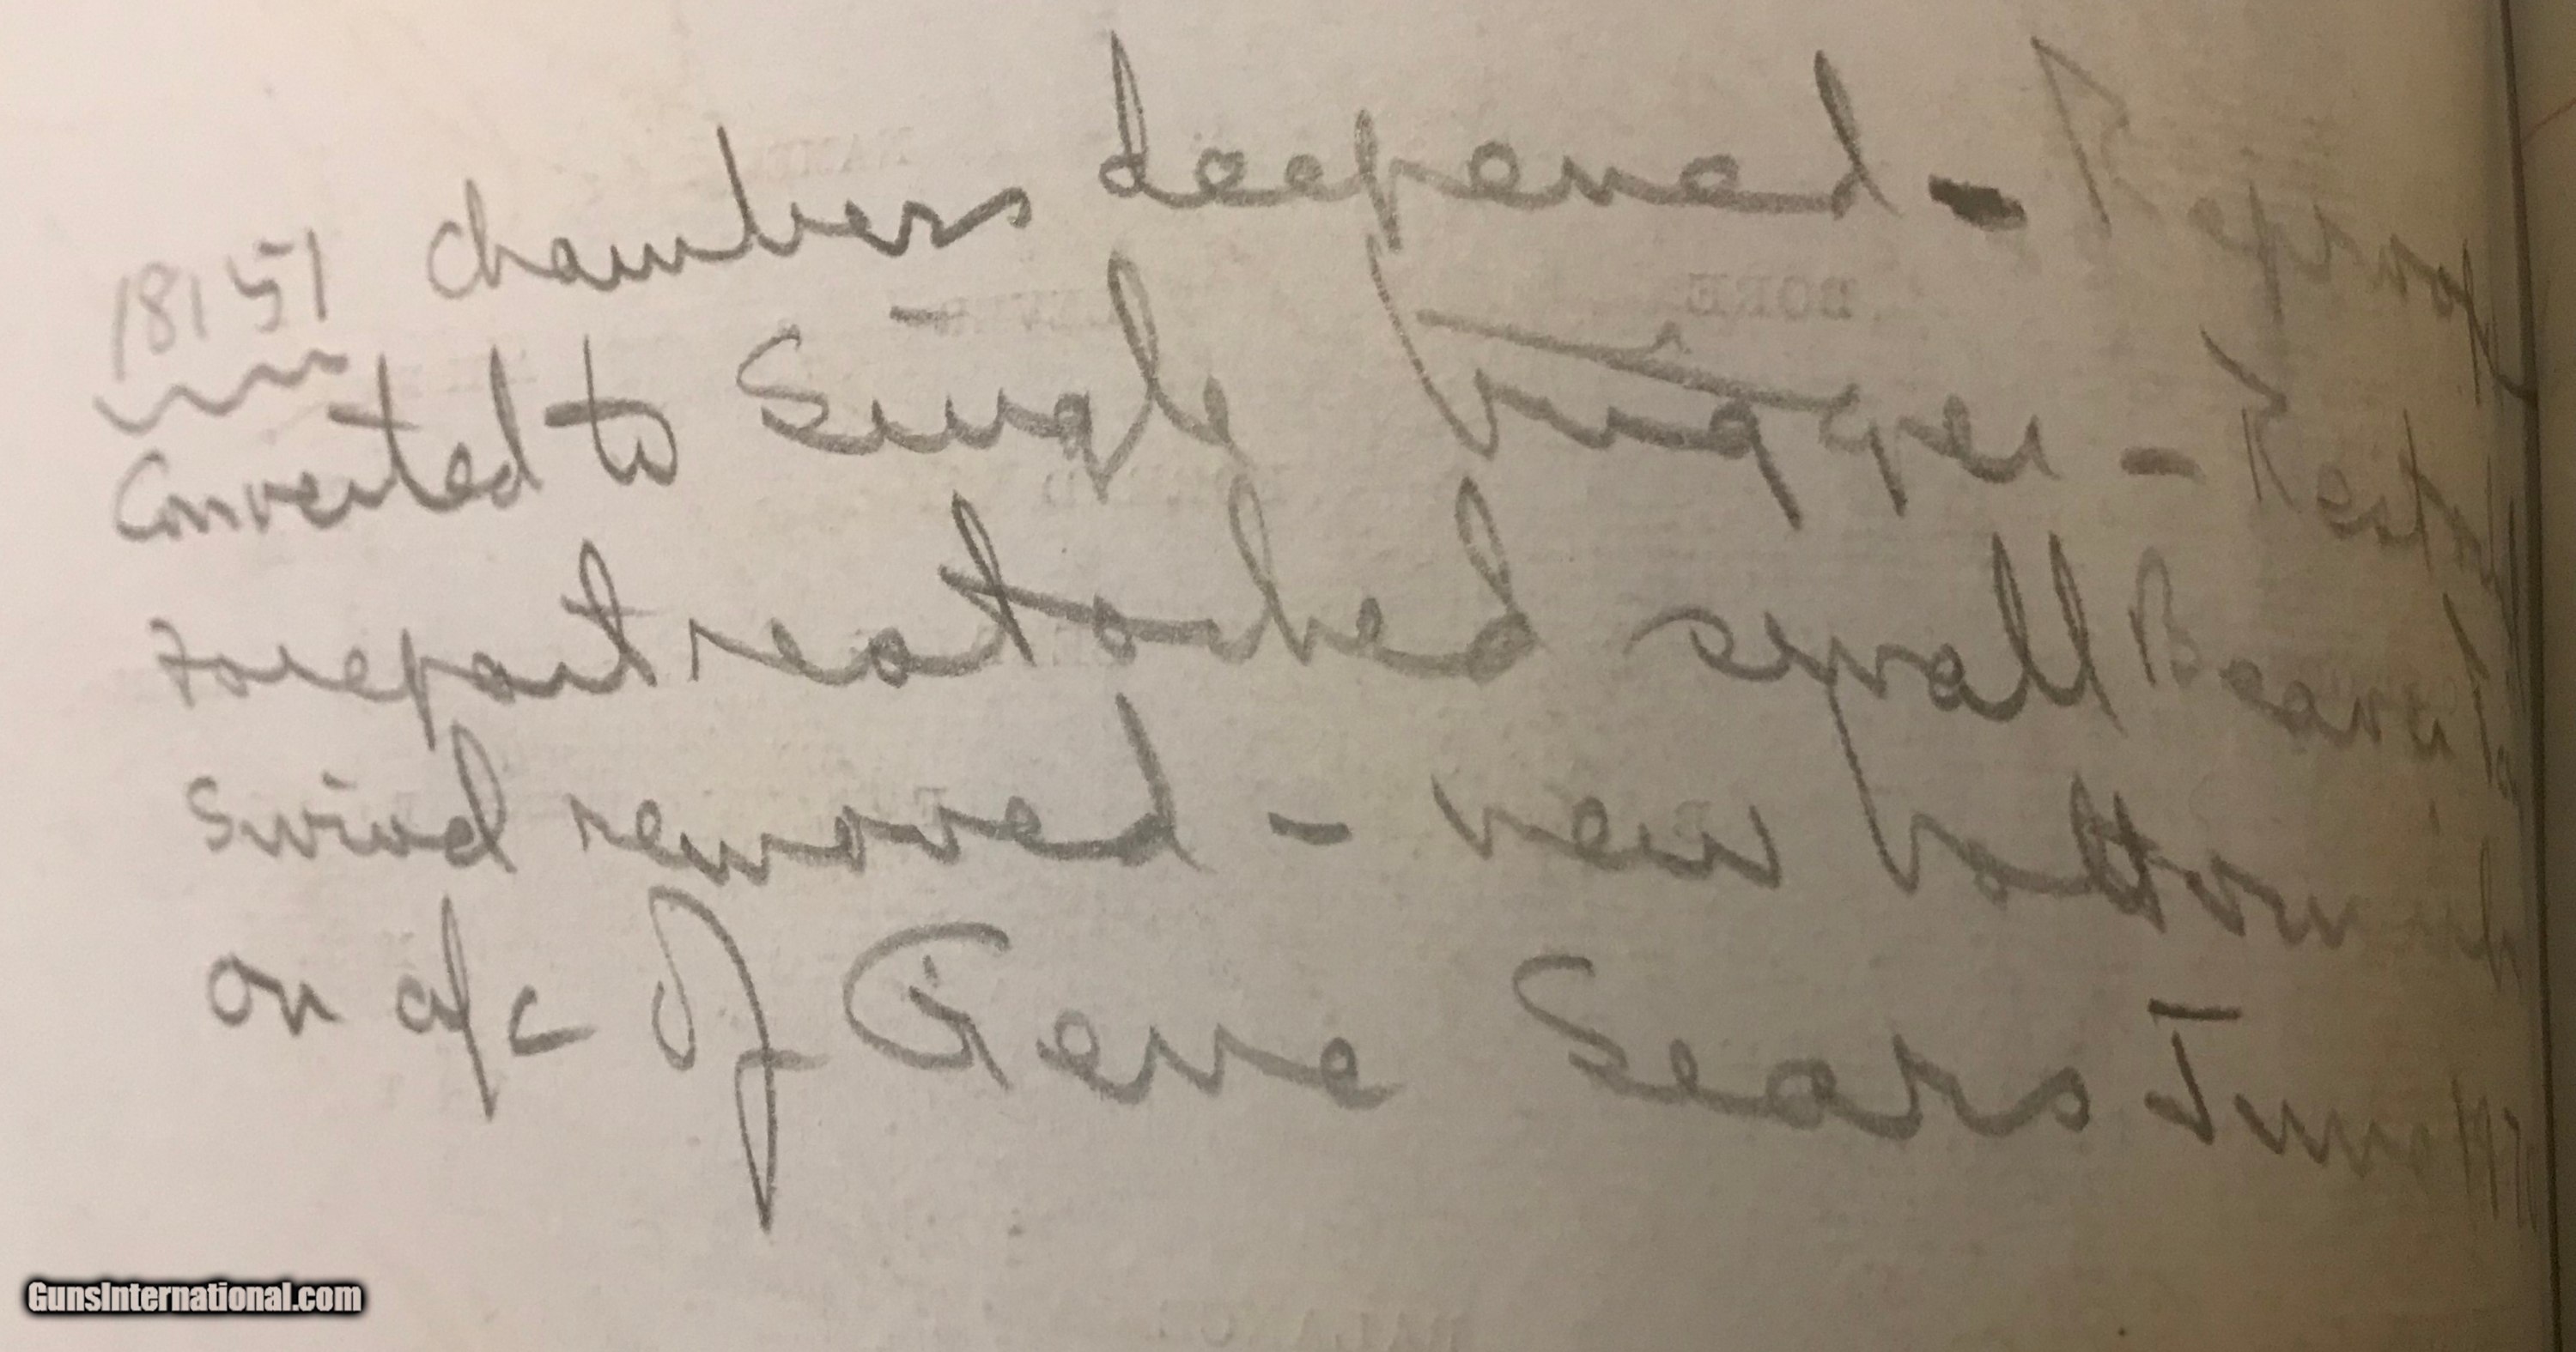 18151 Chambers deepened - Reproof
Converted to Single trigger -
forepart reatached small
swivel removed - new bottom
on a/c of Gene Sears June
GunsInternational.com